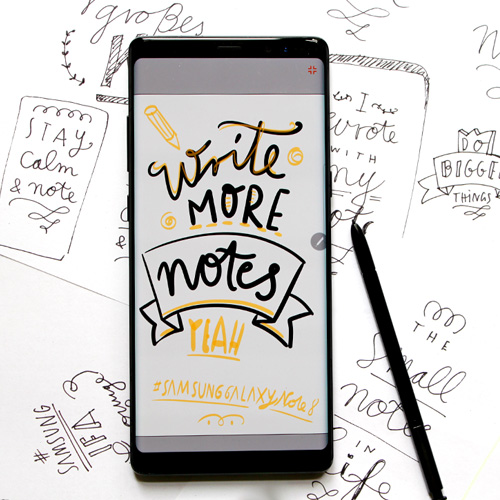 großes
STAY
Calm
& note
Write
MORE
notes
YEAH
#SAMSUNGGALAXYNote8
I
wrote
WITH
my
DO
BIGGER
THINGS
THE
Small
Notes
IN
life
#SAMSUNG
IFA